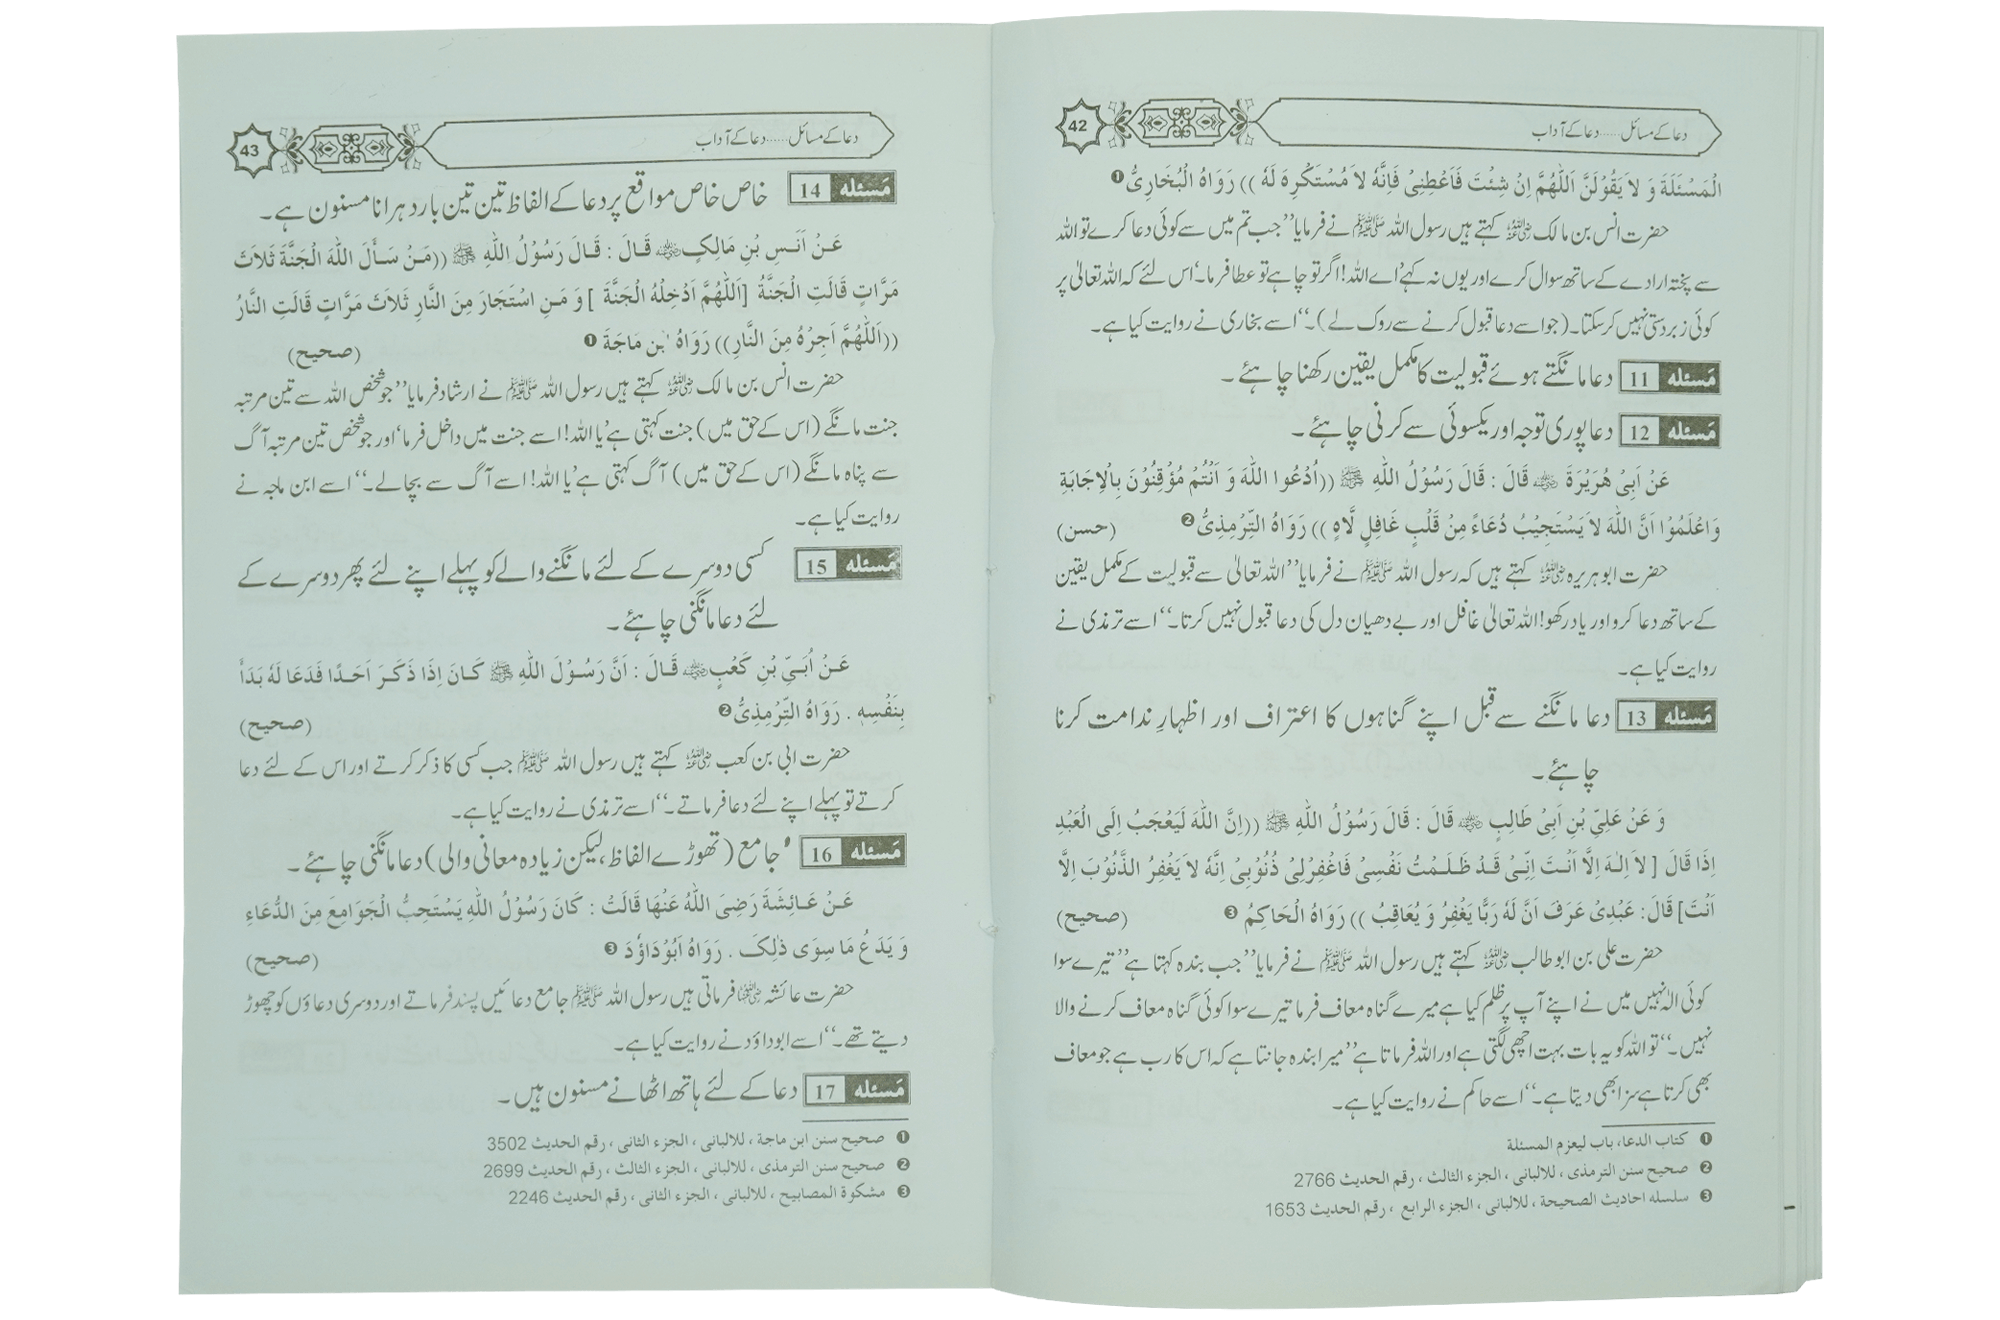 دعا کے مسائل......دعا کے آداب
42
الْمَسْئَلَةَ وَ لاَ یَقُوْلَنَّ اَللّٰهُمَّ اِنْ شِئْتَ فَاَعْطِنِیْ فَاِنَّهٗ لاَ مُسْتَکْرِهَ لَهٗ )) رَوَاهُ الْبُخَارِیُّ❶
حضرت انس بن مالک رضی اللہ عنہ کہتے ہیں رسول اللہ ﷺ نے فرمایا’’جب تم میں سے کوئی دعا کرے تو اللہ
سے پختہ ارادے کے ساتھ سوال کرے اور یوں نہ کہے’اے اللہ!اگر تو چاہے تو عطا فرما۔‘اس لئے کہ اللہ تعالیٰ پر
کوئی زبردستی نہیں کرسکتا۔(جو اسے دعا قبول کرنے سے روک لے)۔‘‘اسے بخاری نے روایت کیا ہے۔
مَسئله 11 دعا مانگتے ہوئے قبولیت کا مکمل یقین رکھنا چاہئے۔
مَسئله 12 دعا پوری توجہ اور یکسوئی سے کرنی چاہئے۔
عَنْ اَبِیْ هُرَیْرَةَ ﷜ قَالَ : قَالَ رَسُوْلُ اللّٰهِ ﷺ ((اُدْعُوا اللّٰهَ وَ اَنْتُمْ مُوْقِنُوْنَ بِالْاِجَابَةِ
وَاعْلَمُوْا اَنَّ اللّٰهَ لاَ یَسْتَجِیْبُ دُعَاءً مِنْ قَلْبٍ غَافِلٍ لَّاهٍ )) رَوَاهُ التِّرْمِذِیُّ❷ (حسن)
حضرت ابو ہریرہ رضی اللہ عنہ کہتے ہیں کہ رسول اللہ ﷺ نے فرمایا’’اللہ تعالیٰ سے قبولیت کے مکمل یقین
کے ساتھ دعا کرو اور یاد رکھو!اللہ تعالیٰ غافل اور بے دھیان دل کی دعا قبول نہیں کرتا۔‘‘اسے ترمذی نے
روایت کیا ہے۔
مَسئله 13 دعا مانگنے سے قبل اپنے گناہوں کا اعتراف اور اظہارِ ندامت کرنا
چاہئے۔
وَ عَنْ عَلِیِّ بْنِ اَبِیْ طَالِبٍ ﷜ قَالَ : قَالَ رَسُوْلُ اللّٰهِ ﷺ ((اِنَّ اللّٰهَ لَیَعْجَبُ اِلَی الْعَبْدِ
اِذَا قَالَ [ لاَ اِلٰهَ اِلَّا اَنْتَ اِنِّیْ قَدْ ظَلَمْتُ نَفْسِیْ فَاغْفِرْلِیْ ذُنُوْبِیْ اِنَّهٗ لاَ یَغْفِرُ الذُّنُوْبَ اِلَّا
اَنْتَ] قَالَ: عَبْدِیْ عَرَفَ اَنَّ لَهٗ رَبًّا یَغْفِرُ وَ یُعَاقِبُ )) رَوَاهُ الْحَاکِمُ ❸ (صحیح)
حضرت علی بن ابو طالب رضی اللہ عنہ کہتے ہیں رسول اللہ ﷺ نے فرمایا’’جب بندہ کہتا ہے’’تیرے سوا
کوئی الٰہ نہیں میں نے اپنے آپ پر ظلم کیا ہے میرے گناہ معاف فرما تیرے سوا کوئی گناہ معاف کرنے والا
نہیں۔‘‘تو اللہ کو یہ بات بہت اچھی لگتی ہے اور اللہ فرماتا ہے’’میرا بندہ جانتا ہے کہ اس کا رب ہے جو معاف
بھی کرتا ہے سزا بھی دیتا ہے۔‘‘اسے حاکم نے روایت کیا ہے۔
❶ کتاب الدعا، باب لیعزم المسئلة
❷ صحیح سنن الترمذی ، للالبانی ، الجزء الثالث ، رقم الحدیث 2766
❸ سلسله احادیث الصحیحة ، للالبانی ، الجزء الرابع ، رقم الحدیث 1653
دعا کے مسائل......دعا کے آداب
43
مَسئله 14 خاص خاص مواقع پر دعا کے الفاظ تین تین بار دہرانا مسنون ہے۔
عَنْ اَنَسِ بْنِ مَالِکٍ﷜ قَالَ : قَالَ رَسُوْلُ اللّٰهِ ﷺ ((مَنْ سَأَلَ اللّٰهَ الْجَنَّةَ ثَلاَثَ
مَرَّاتٍ قَالَتِ الْجَنَّةُ [اَللّٰهُمَّ اَدْخِلْهُ الْجَنَّةَ ] وَ مَنِ اسْتَجَارَ مِنَ النَّارِ ثَلاَثَ مَرَّاتٍ قَالَتِ النَّارُ
((اَللّٰهُمَّ اَجِرْهُ مِنَ النَّارِ)) رَوَاهُ ابْن مَاجَةَ ❶ (صحیح)
حضرت انس بن مالک رضی اللہ عنہ کہتے ہیں رسول اللہ ﷺ نے ارشاد فرمایا’’جو شخص اللہ سے تین مرتبہ
جنت مانگے (اس کے حق میں) جنت کہتی ہے’یا اللہ!اسے جنت میں داخل فرما‘اور جو شخص تین مرتبہ آگ
سے پناہ مانگے (اس کے حق میں) آگ کہتی ہے’یا اللہ!اسے آگ سے بچالے۔‘‘اسے ابن ماجہ نے
روایت کیا ہے۔
مَسئله 15 کسی دوسرے کے لئے مانگنے والے کو پہلے اپنے لئے پھر دوسرے کے
لئے دعا مانگنی چاہئے۔
عَنْ اُبَیِّ بْنِ کَعْبٍ﷜ قَالَ : اَنَّ رَسُوْلَ اللّٰهِ ﷺ کَانَ اِذَا ذَکَرَ اَحَدًا فَدَعَا لَهٗ بَدَأَ
بِنَفْسِهٖ . رَوَاهُ التِّرْمِذِیُّ❷ (صحیح)
حضرت ابی بن کعب رضی اللہ عنہ کہتے ہیں رسول اللہ ﷺ جب کسی کا ذکر کرتے اور اس کے لئے دعا
کرتے تو پہلے اپنے لئے دعا فرماتے۔‘‘اسے ترمذی نے روایت کیا ہے۔
مَسئله 16 جامع (تھوڑے الفاظ، لیکن زیادہ معانی والی) دعا مانگنی چاہئے۔
عَنْ عَائِشَةَ رَضِیَ اللّٰهُ عَنْهَا قَالَتْ : کَانَ رَسُوْلُ اللّٰهِ یَسْتَحِبُّ الْجَوَامِعَ مِنَ الدُّعَاءِ
وَ یَدَعُ مَا سِوَی ذٰلِکَ . رَوَاهُ اَبُوْدَاوٗدَ ❸ (صحیح)
حضرت عائشہ رضی اللہ عنہا فرماتی ہیں رسول اللہ ﷺ جامع دعائیں پسند فرماتے اور دوسری دعاؤں کو چھوڑ
دیتے تھے۔‘‘اسے ابوداؤد نے روایت کیا ہے۔
مَسئله 17 دعا کے لئے ہاتھ اٹھانے مسنون ہیں۔
❶ صحیح سنن ابن ماجة ، للالبانی ، الجزء الثانی ، رقم الحدیث 3502
❷ صحیح سنن الترمذی ، للالبانی ، الجزء الثالث ، رقم الحدیث 2699
❸ مشکوة المصابیح ، للالبانی ، الجزء الثانی ، رقم الحدیث 2246